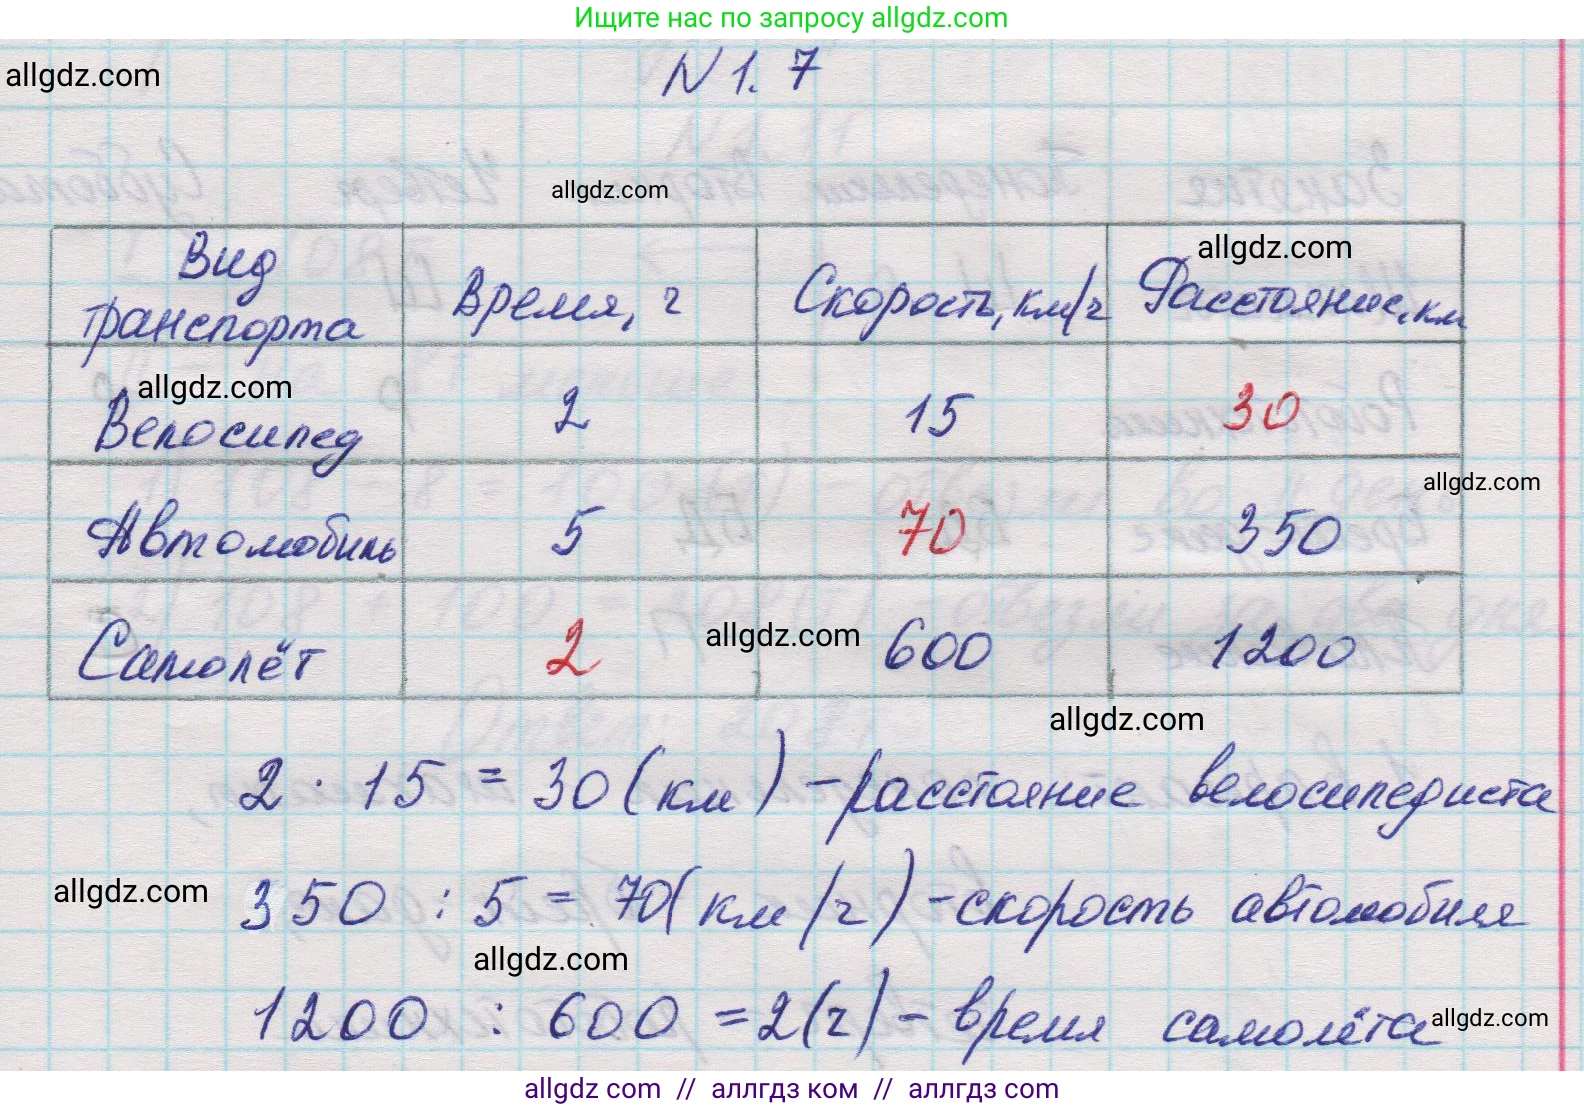 Ищите нас по запросу allgdz.com
allgdz.com
N 1. 7
allgdz.com
allgdz.com
Вид транспорта Время, ч Скорость, км/ч Расстояние, км
allgdz.com
Велосипед 2 15 30
allgdz.com
Автомобиль 5 70 350
allgdz.com
Самолёт 2 600 1200
allgdz.com
2 · 15 = 30 (км) – расстояние велосипедиста
allgdz.com
350 : 5 = 70 (км/ч) – скорость автомобиля
allgdz.com
1200 : 600 = 2 (ч) – время самолёта
allgdz.com
allgdz com // аллгдз ком // аллгдз com